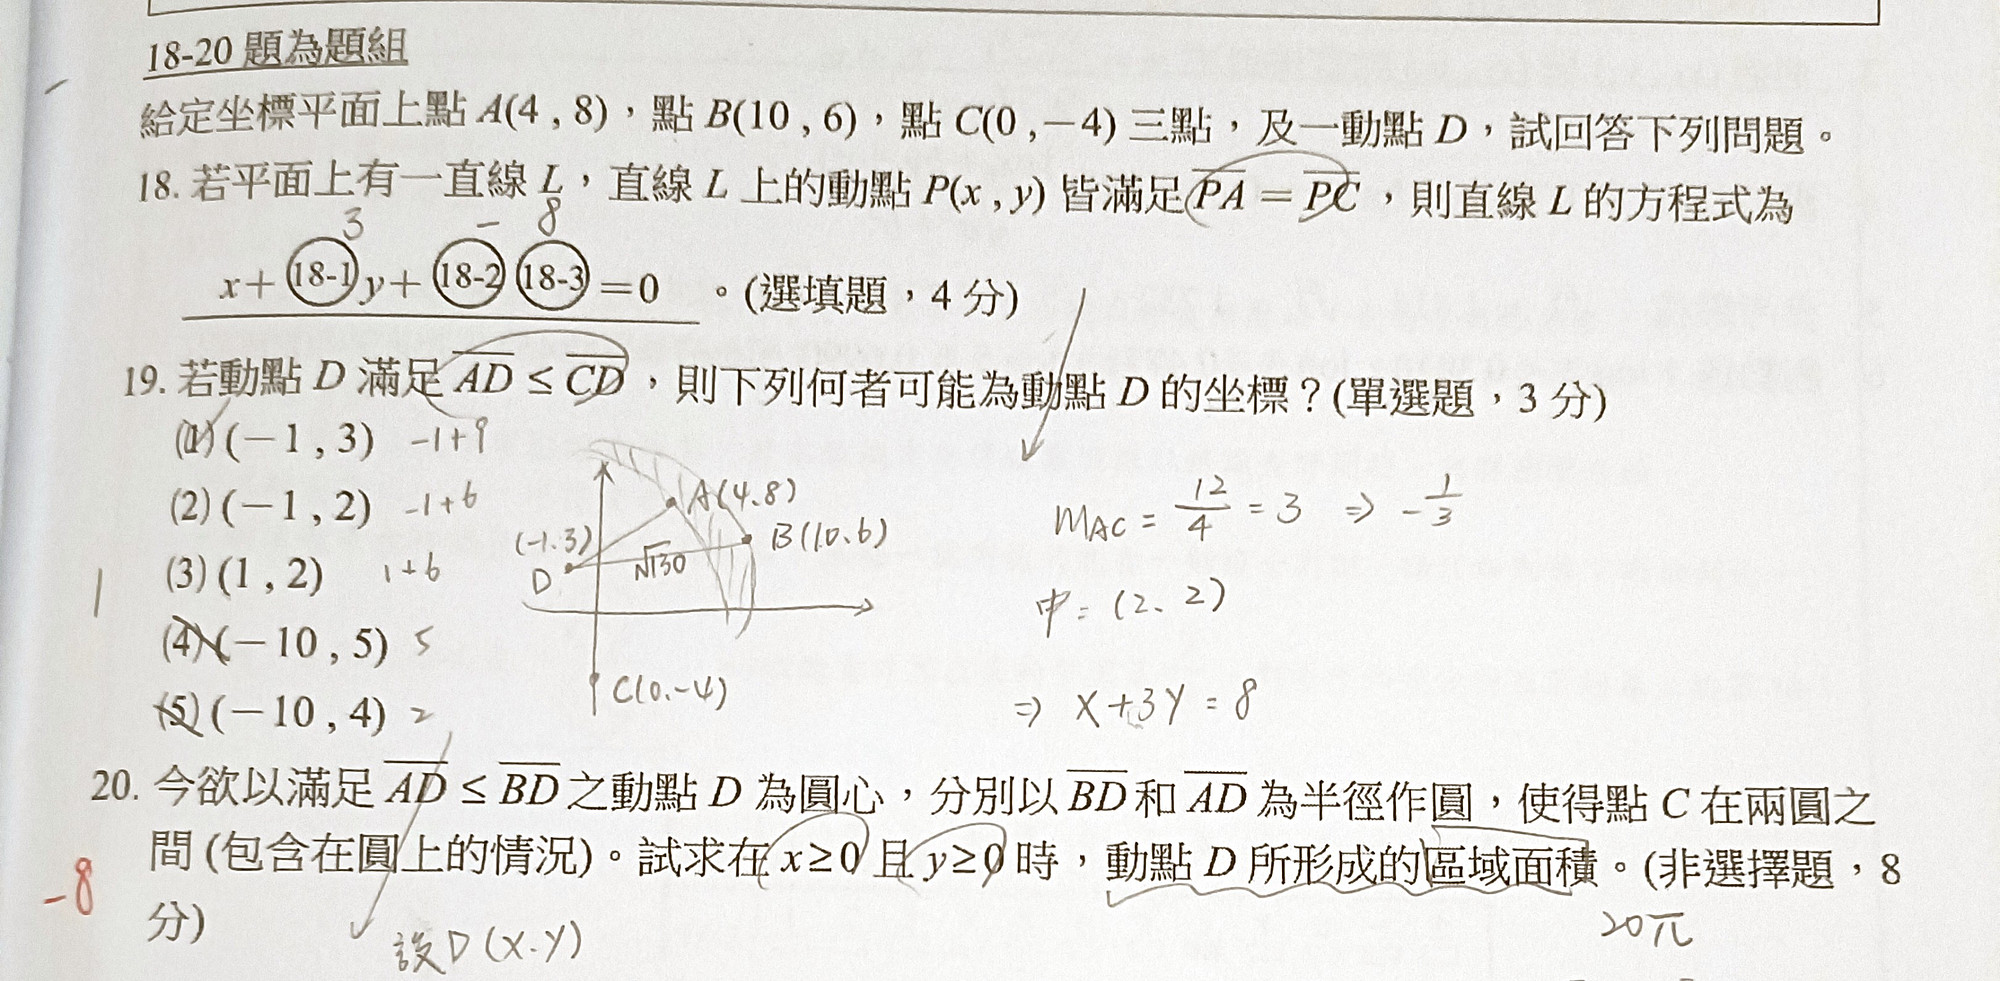 18-20 題為題組
給定坐標平面上點 A(4 , 8),點 B(10 , 6),點 C(0 ,−4) 三點,及一動點 D,試回答下列問題。
18. 若平面上有一直線 L,直線 L 上的動點 P(x , y) 皆滿足 PA = PC ,則直線 L 的方程式為
3 − 8
x+ 18-1 y+ 18-2 18-3 =0 。(選填題,4 分)
19. 若動點 D 滿足 AD ≤ CD ,則下列何者可能為動點 D 的坐標?(單選題,3 分)
(1) (−1 , 3) -1+9
(2) (−1 , 2) -1+6
(3) (1 , 2) 1+6
(4) (−10 , 5) 5
(5) (−10 , 4) 2
A(4.8)
(-1.3)
B(10.6)
D
√130
C(0.-4)
1
mAC = 12/4 = 3 ⇒ -1/3
中= (2、2)
⇒ x+3y=8
20. 今欲以滿足 AD ≤ BD 之動點 D 為圓心,分別以 BD 和 AD 為半徑作圓,使得點 C 在兩圓之
間 (包含在圓上的情況)。試求在 x≥0 且 y≥0 時,動點 D 所形成的區域面積。(非選擇題,8
分)
-8
20π
設D(x.y)